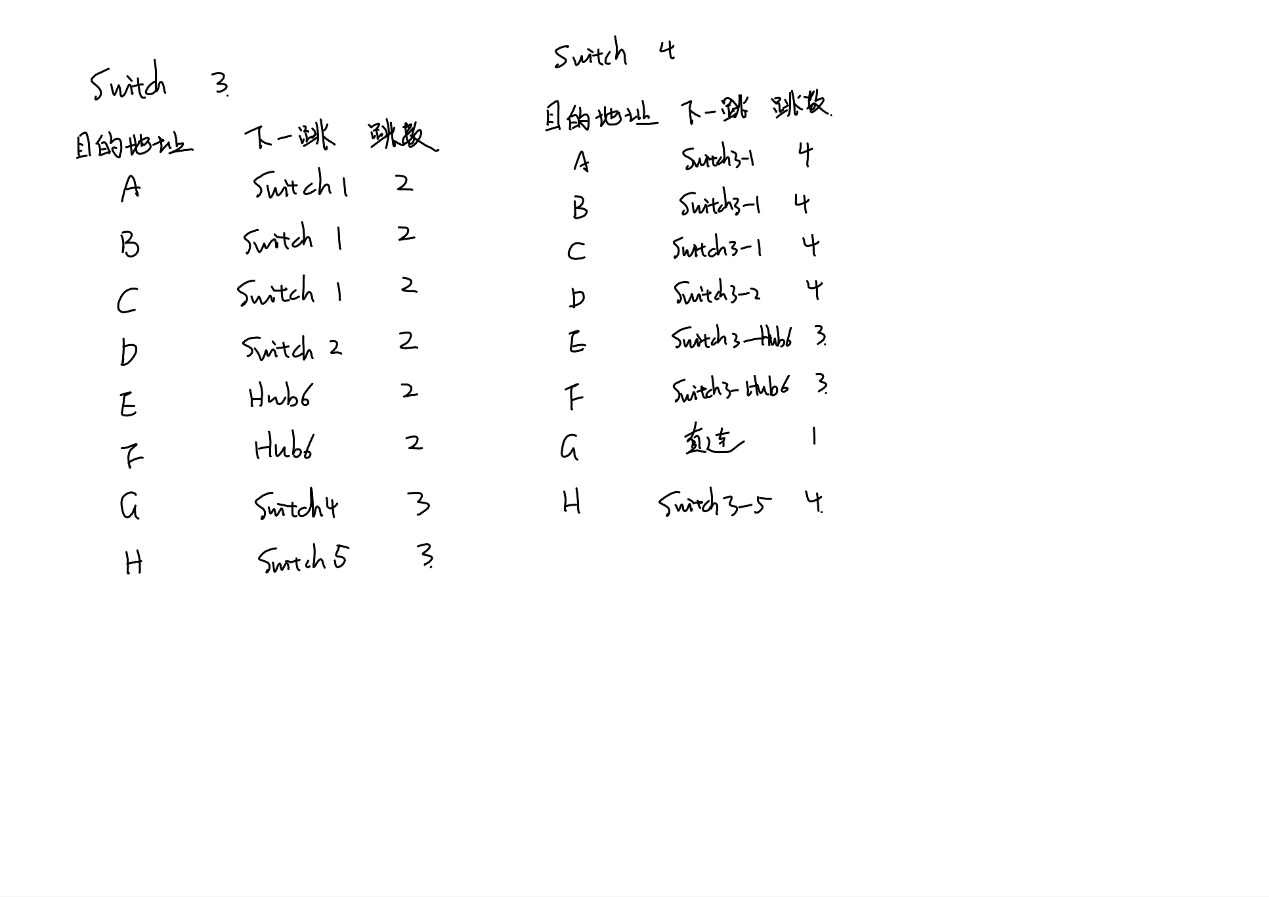 Switch 3.
目的地址 下一跳 跳数
A Switch 1 2
B Switch 1 2
C Switch 1 2
D Switch 2 2
E Hub6 2
F Hub6 2
G Switch4 3
H Switch 5 3.
Switch 4
目的地址 下一跳 跳数.
A Switch3-1 4
B Switch3-1 4
C Switch3-1 4
D Switch3-2 4
E Switch3-Hub6 3.
F Switch3-Hub6 3.
G 直连 1
H Switch3-5 4.